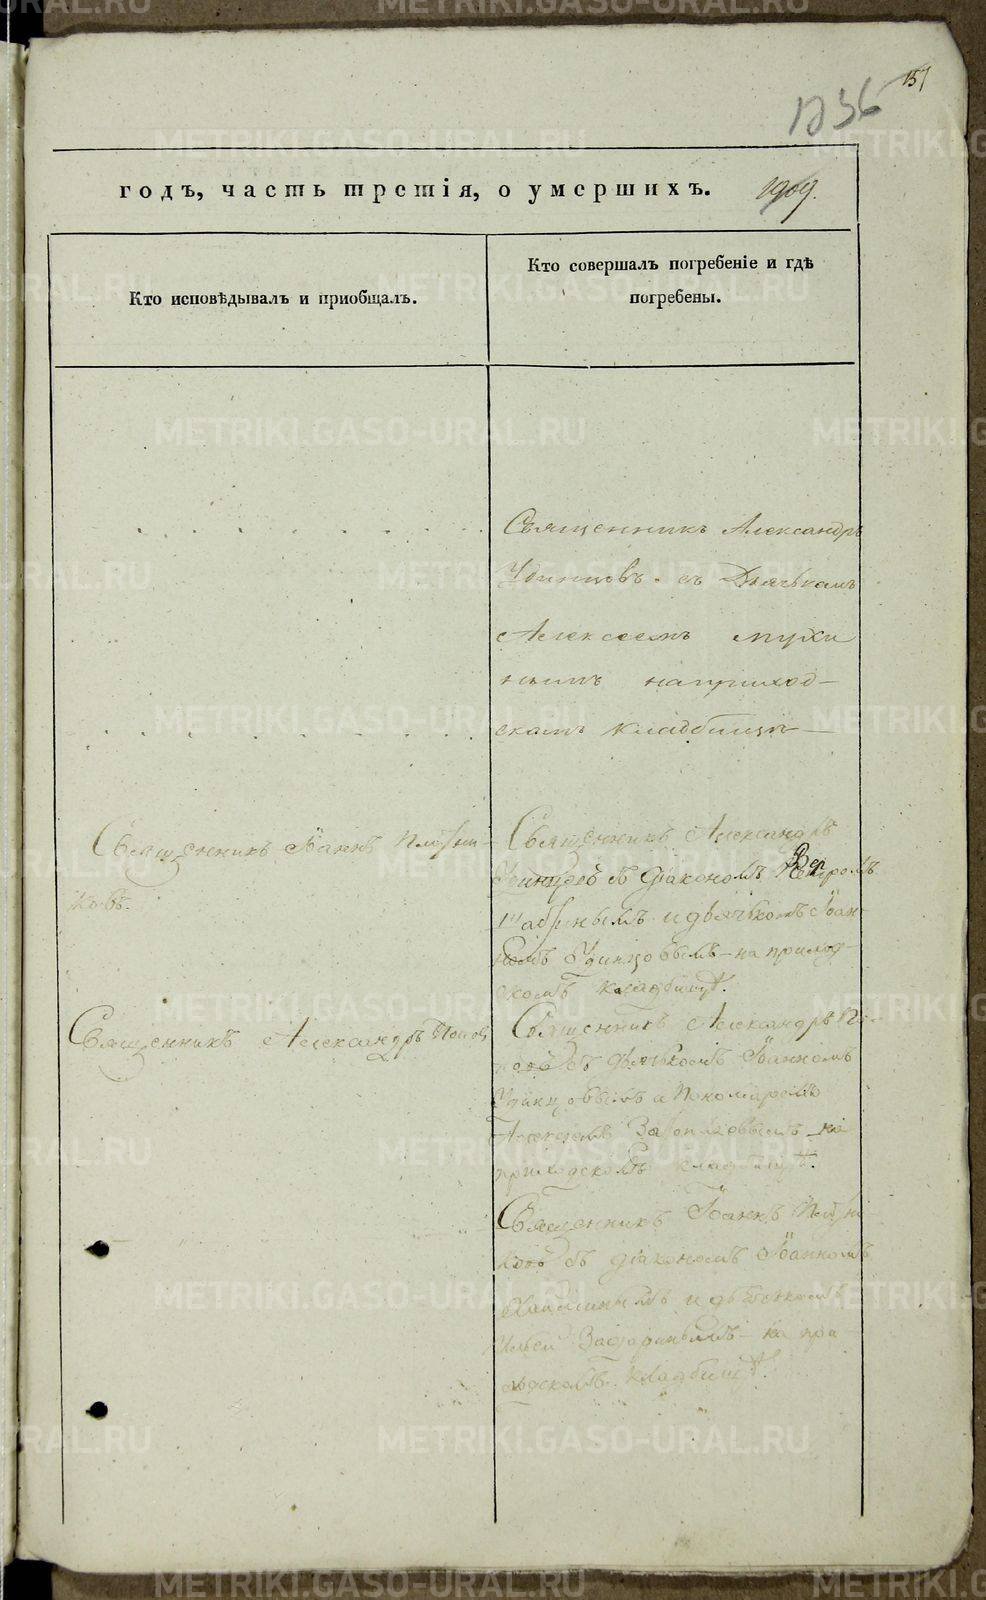 157
1236
годъ, часть третія, о умершихъ. 1909.
Кто исповѣдывалъ и приобщалъ.
Кто совершалъ погребеніе и гдѣ
погребены.
Священникъ Александръ
Удинцовъ. съ Дьячькомъ
Алексеемъ Мухи
нымъ наприход-
скомъ кладбищѣ
Священникъ Іоаннъ Плотни-
ковъ.
Священникъ Александръ
Удинцовъ съ Діакономъ
и дьячькомъ Іоан-
номъ Удинцовымъ - на приход-
скомъ кладбищѣ.
Священникъ Александръ Поповъ
Священникъ Александръ По-
повъ съ Дьячькомъ Іоанномъ
Удинцовымъ и Пономаремъ
Алексеемъ на
приходскомъ кладбищѣ.
Священникъ Іоаннъ Плотни-
ковъ съ діакономъ Іоанномъ
и дьячкомъ
на при
ходскомъ кладбищѣ.
METRIKI.GASO-URAL.RU